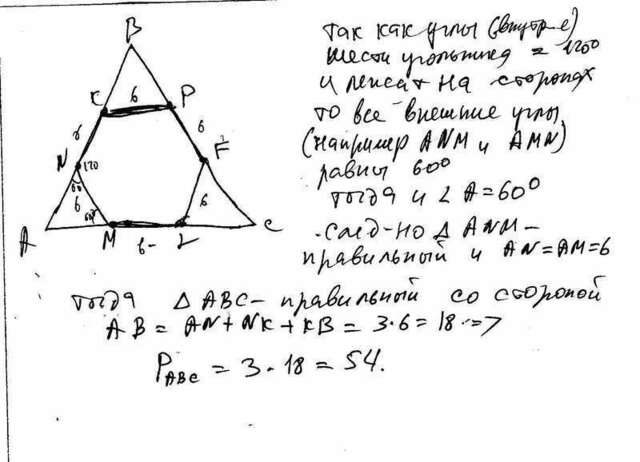 B
K 6 P
6 6
N 120 F
60 6 60° 6
A M 6 L C
Так как углы (внутр-е)
шести угольника = 120°
и лежат на сторонах
то все внешние углы
(например ANM и AMN)
равны 60°
тогда и ∠ A = 60°
След-но Δ ANM –
правильный и AN = AM = 6
тогда Δ ABC – правильный со стороной
AB = AN + NK + KB = 3·6 = 18 =>
P ABC = 3·18 = 54.